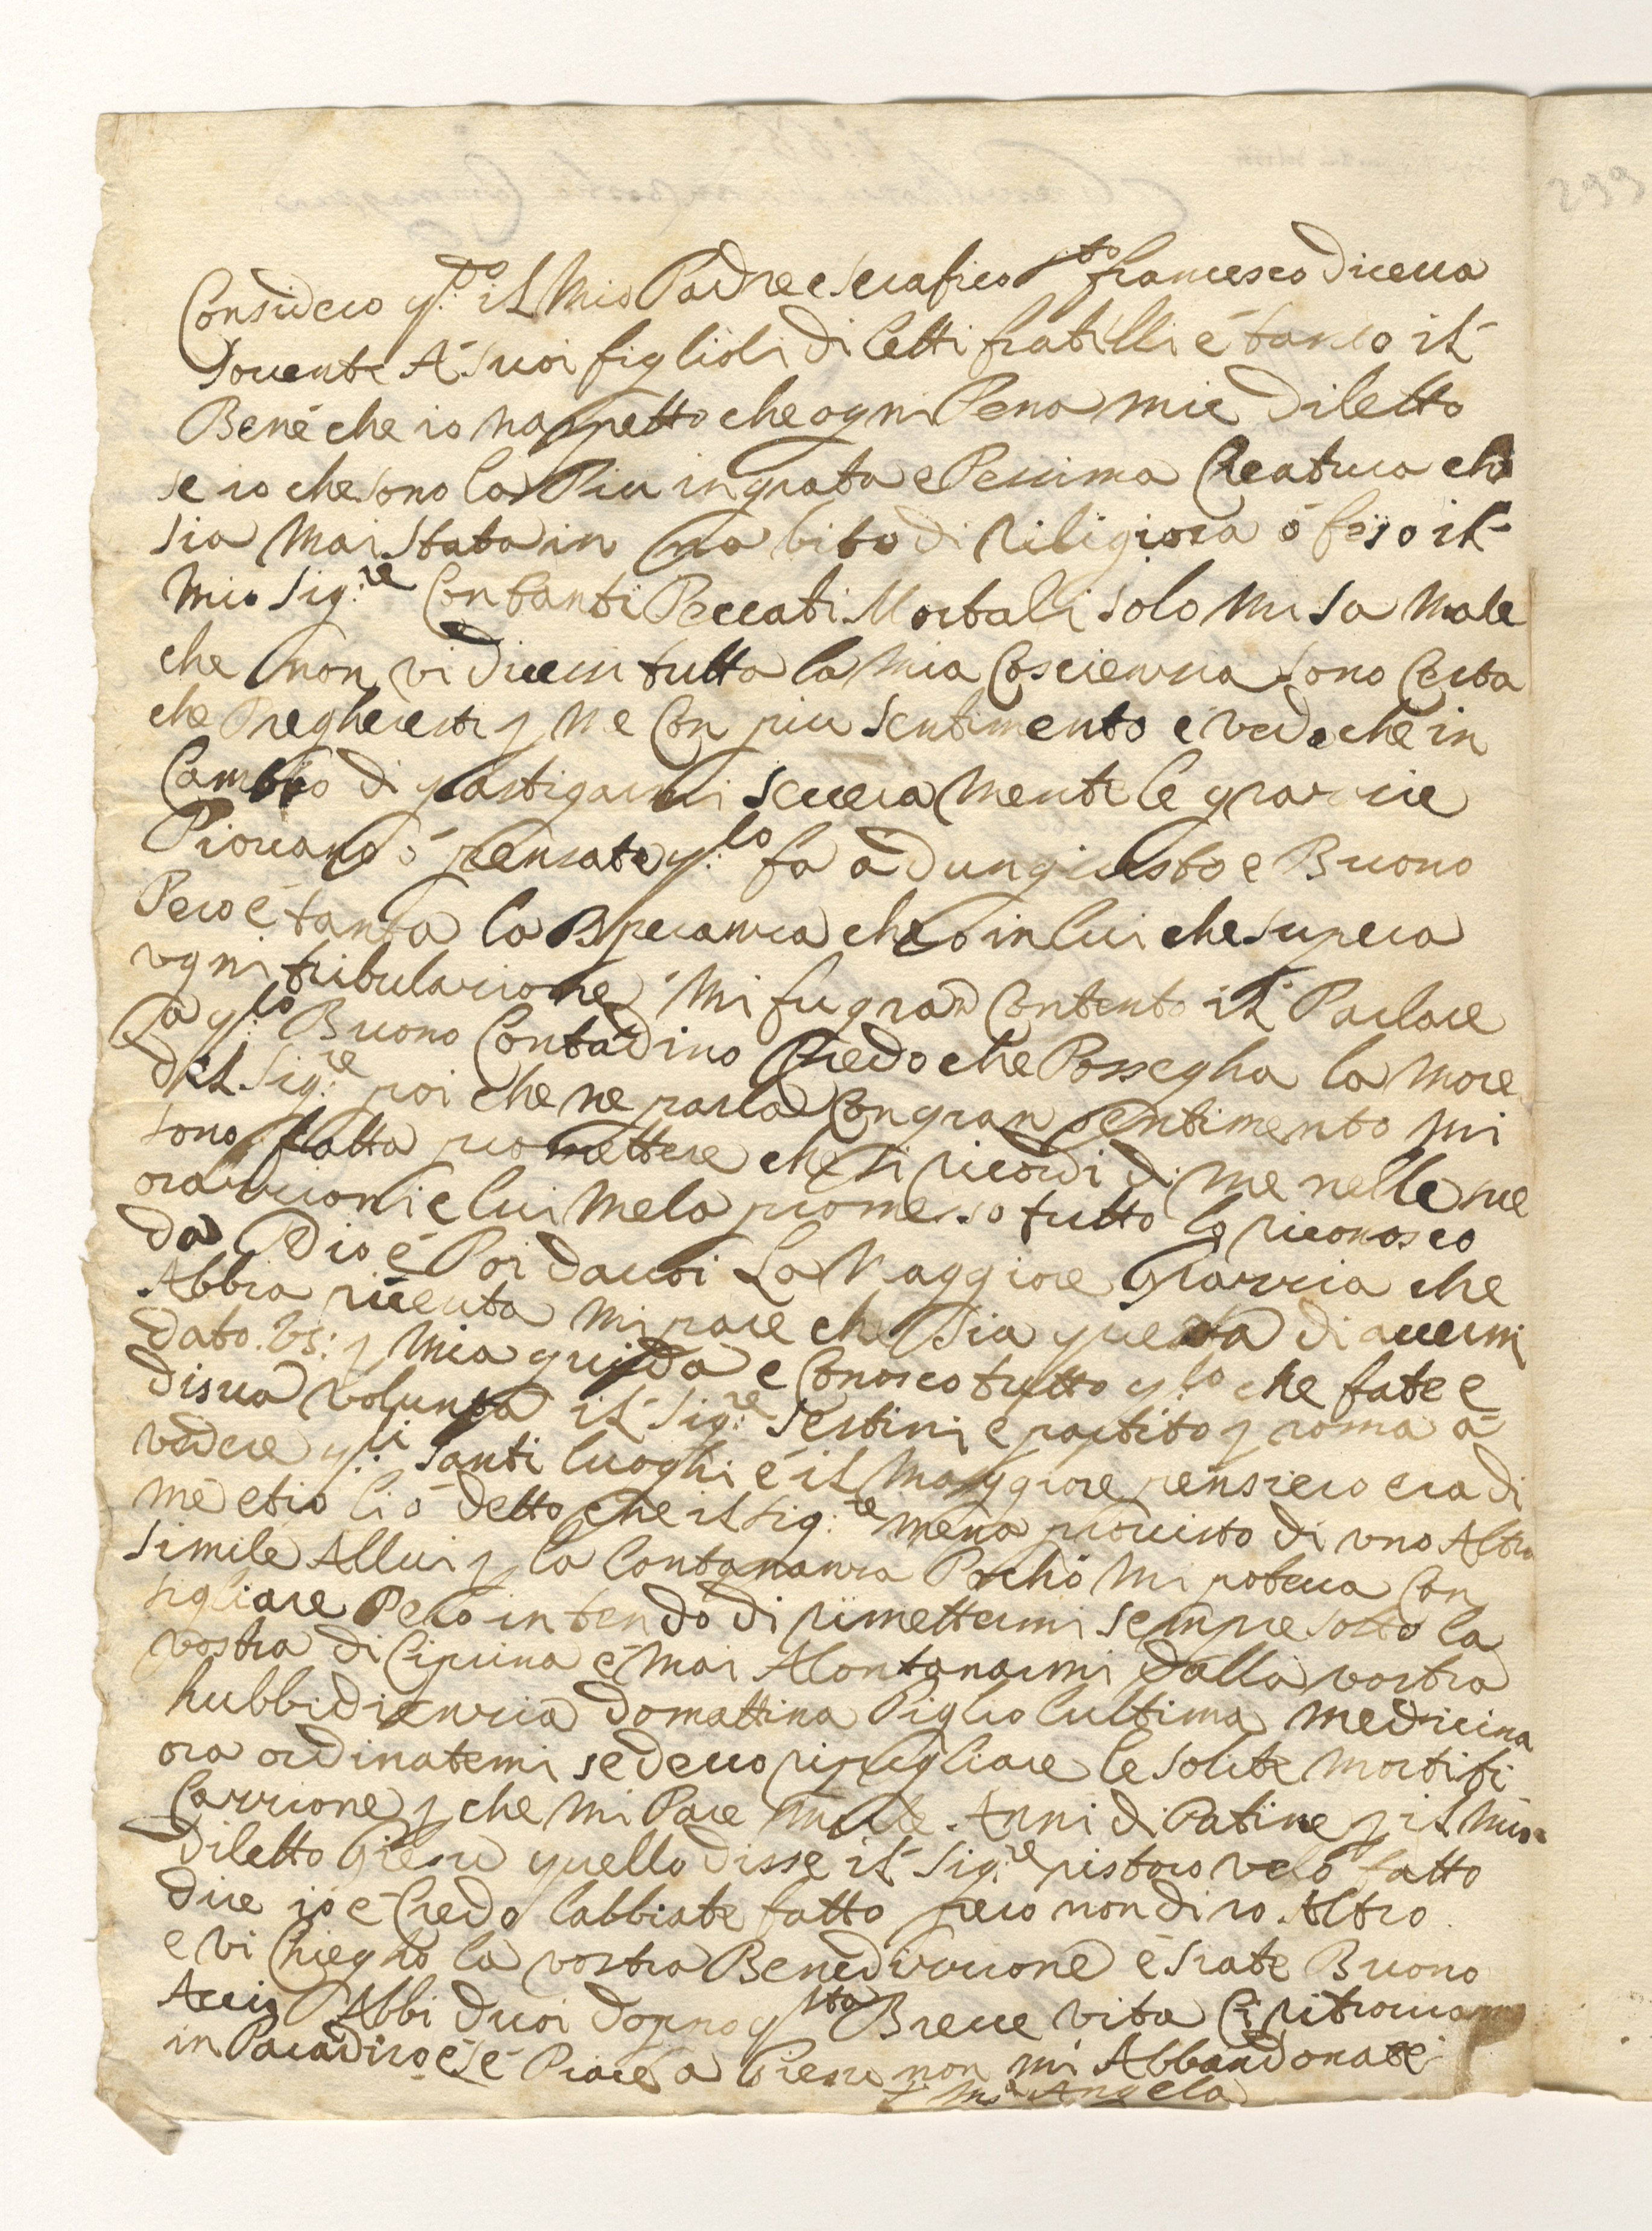 Considero q:do il Mio Padre e Serafico Sto francesco diceua
Souente A Suoi figlioli diletti fratelli é tanto il
Bene che io maspetto che ogni Pena mie diletto
se io che sono la Piu ingrata e Pessima Creatura che
sia Mai Stata in na bito di riligiosa ó feso il
mio Sig:re Con tanti Peccati Mortali solo Mi Sa Male
che non vi dicessi tutta la Mia Coscienza sono Certa
che Preghereste p Me Con piu sentimento e vedo che in
Cambio di gastigarmi seuera Mente le grazzie
Piouano ó pensate q:lo fa á dun giusto e Buono
Pero é tanta la Speranza che ó in lui che supera
ogni tribulazione Mi fu gran Contento il Parlare
Da q:lo Buono Contadino Credo che Possegha la More
del Sig:re poi che ne parla Con gran sentimento Mi
sono fatta promettere che si ricordi di Me nelle sue
orazzioni e lui Mela promesso tutto lo riconosco
da Dio é Poi da uoi La Maggiore Grazzia che
Abbia riceuta Mi pare che Sia questa di auermi
dato. Vs: p Mia guida e Conosco tutto q:lo che fate e
di sua volunta il Sig:re Sestini e partito p roma á
vedere q:li Santi luoghi é il Maggiore pensiero era di
Me et io li ó detto che il Sig:re mena prouisto di uno Altro
simile Allui p la lontananza Pocho Mi poteua Con
sigliare Pero intendo di rimettermi sempre sotto la
vostra diciprina é Mai Alontanarmi dalla vostra
hubbidienzia domattina Piglio lultima Medicina
ora ordinatemi se deuo ripigliare le solite Mortifi
Cazzione p che Mi Pare Mille Anni di Patire p il Mio
diletto Giesu quello disse il Sig:re pistoro velo fatto
dire io é Credo labbiate fatto pero non diro Altro
e vi Chiegho la vostra Benedizzione é Siate Buono
Accio Abbi duoi doppo q:sta Breue vita Ci ritrouiamo
in Paradiso é Se Piace a Giesu non Mi Abbandonate
S Ma Angela